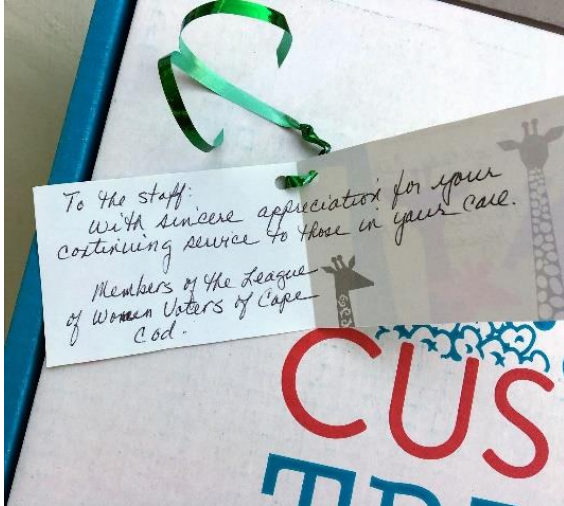 To the staff:
With sincere appreciation for your
continuing service to those in your care.
Members of the League
of Women Voters of Cape
Cod.
CUS